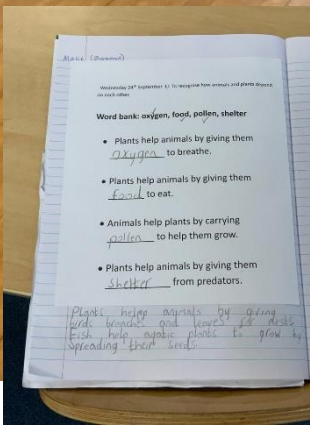 Wednesday 24th September LI: To recognise how animals and plants depend
on each other.
Word bank: oxygen, food, pollen, shelter
• Plants help animals by giving them
oxygen to breathe.
• Plants help animals by giving them
food to eat.
• Animals help plants by carrying
pollen to help them grow.
• Plants help animals by giving them
shelter from predators.
Plants helep animals by giving
birds branches and leaves for nests
Fish help aqatic plants to grow by
spreading their seeds.